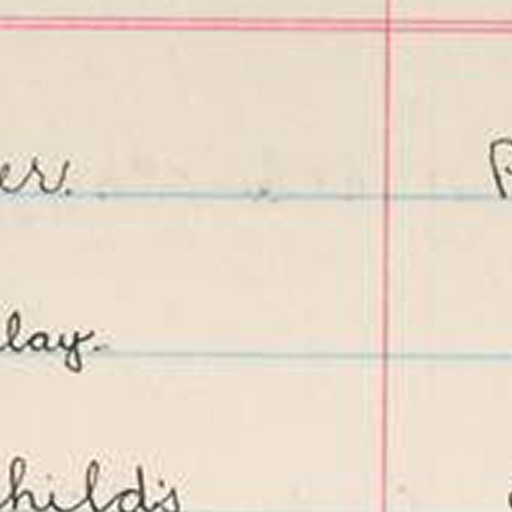 er.
lay.
hild's